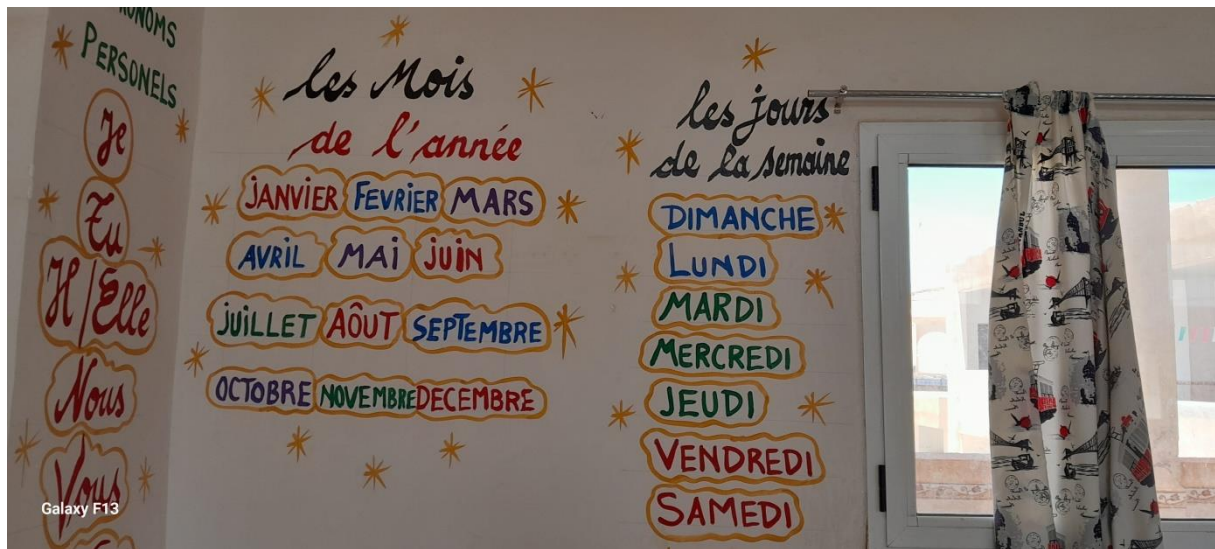 PERSONELS
Je
Tu
Il/Elle
Nous
Vous
les Mois
de l'année
JANVIER FEVRIER MARS
AVRIL MAI JUIN
JUILLET AÔUT SEPTEMBRE
OCTOBRE NOVEMBRE DECEMBRE
les jours
de la semaine
DIMANCHE
LUNDI
MARDI
MERCREDI
JEUDI
VENDREDI
SAMEDI
Galaxy F13